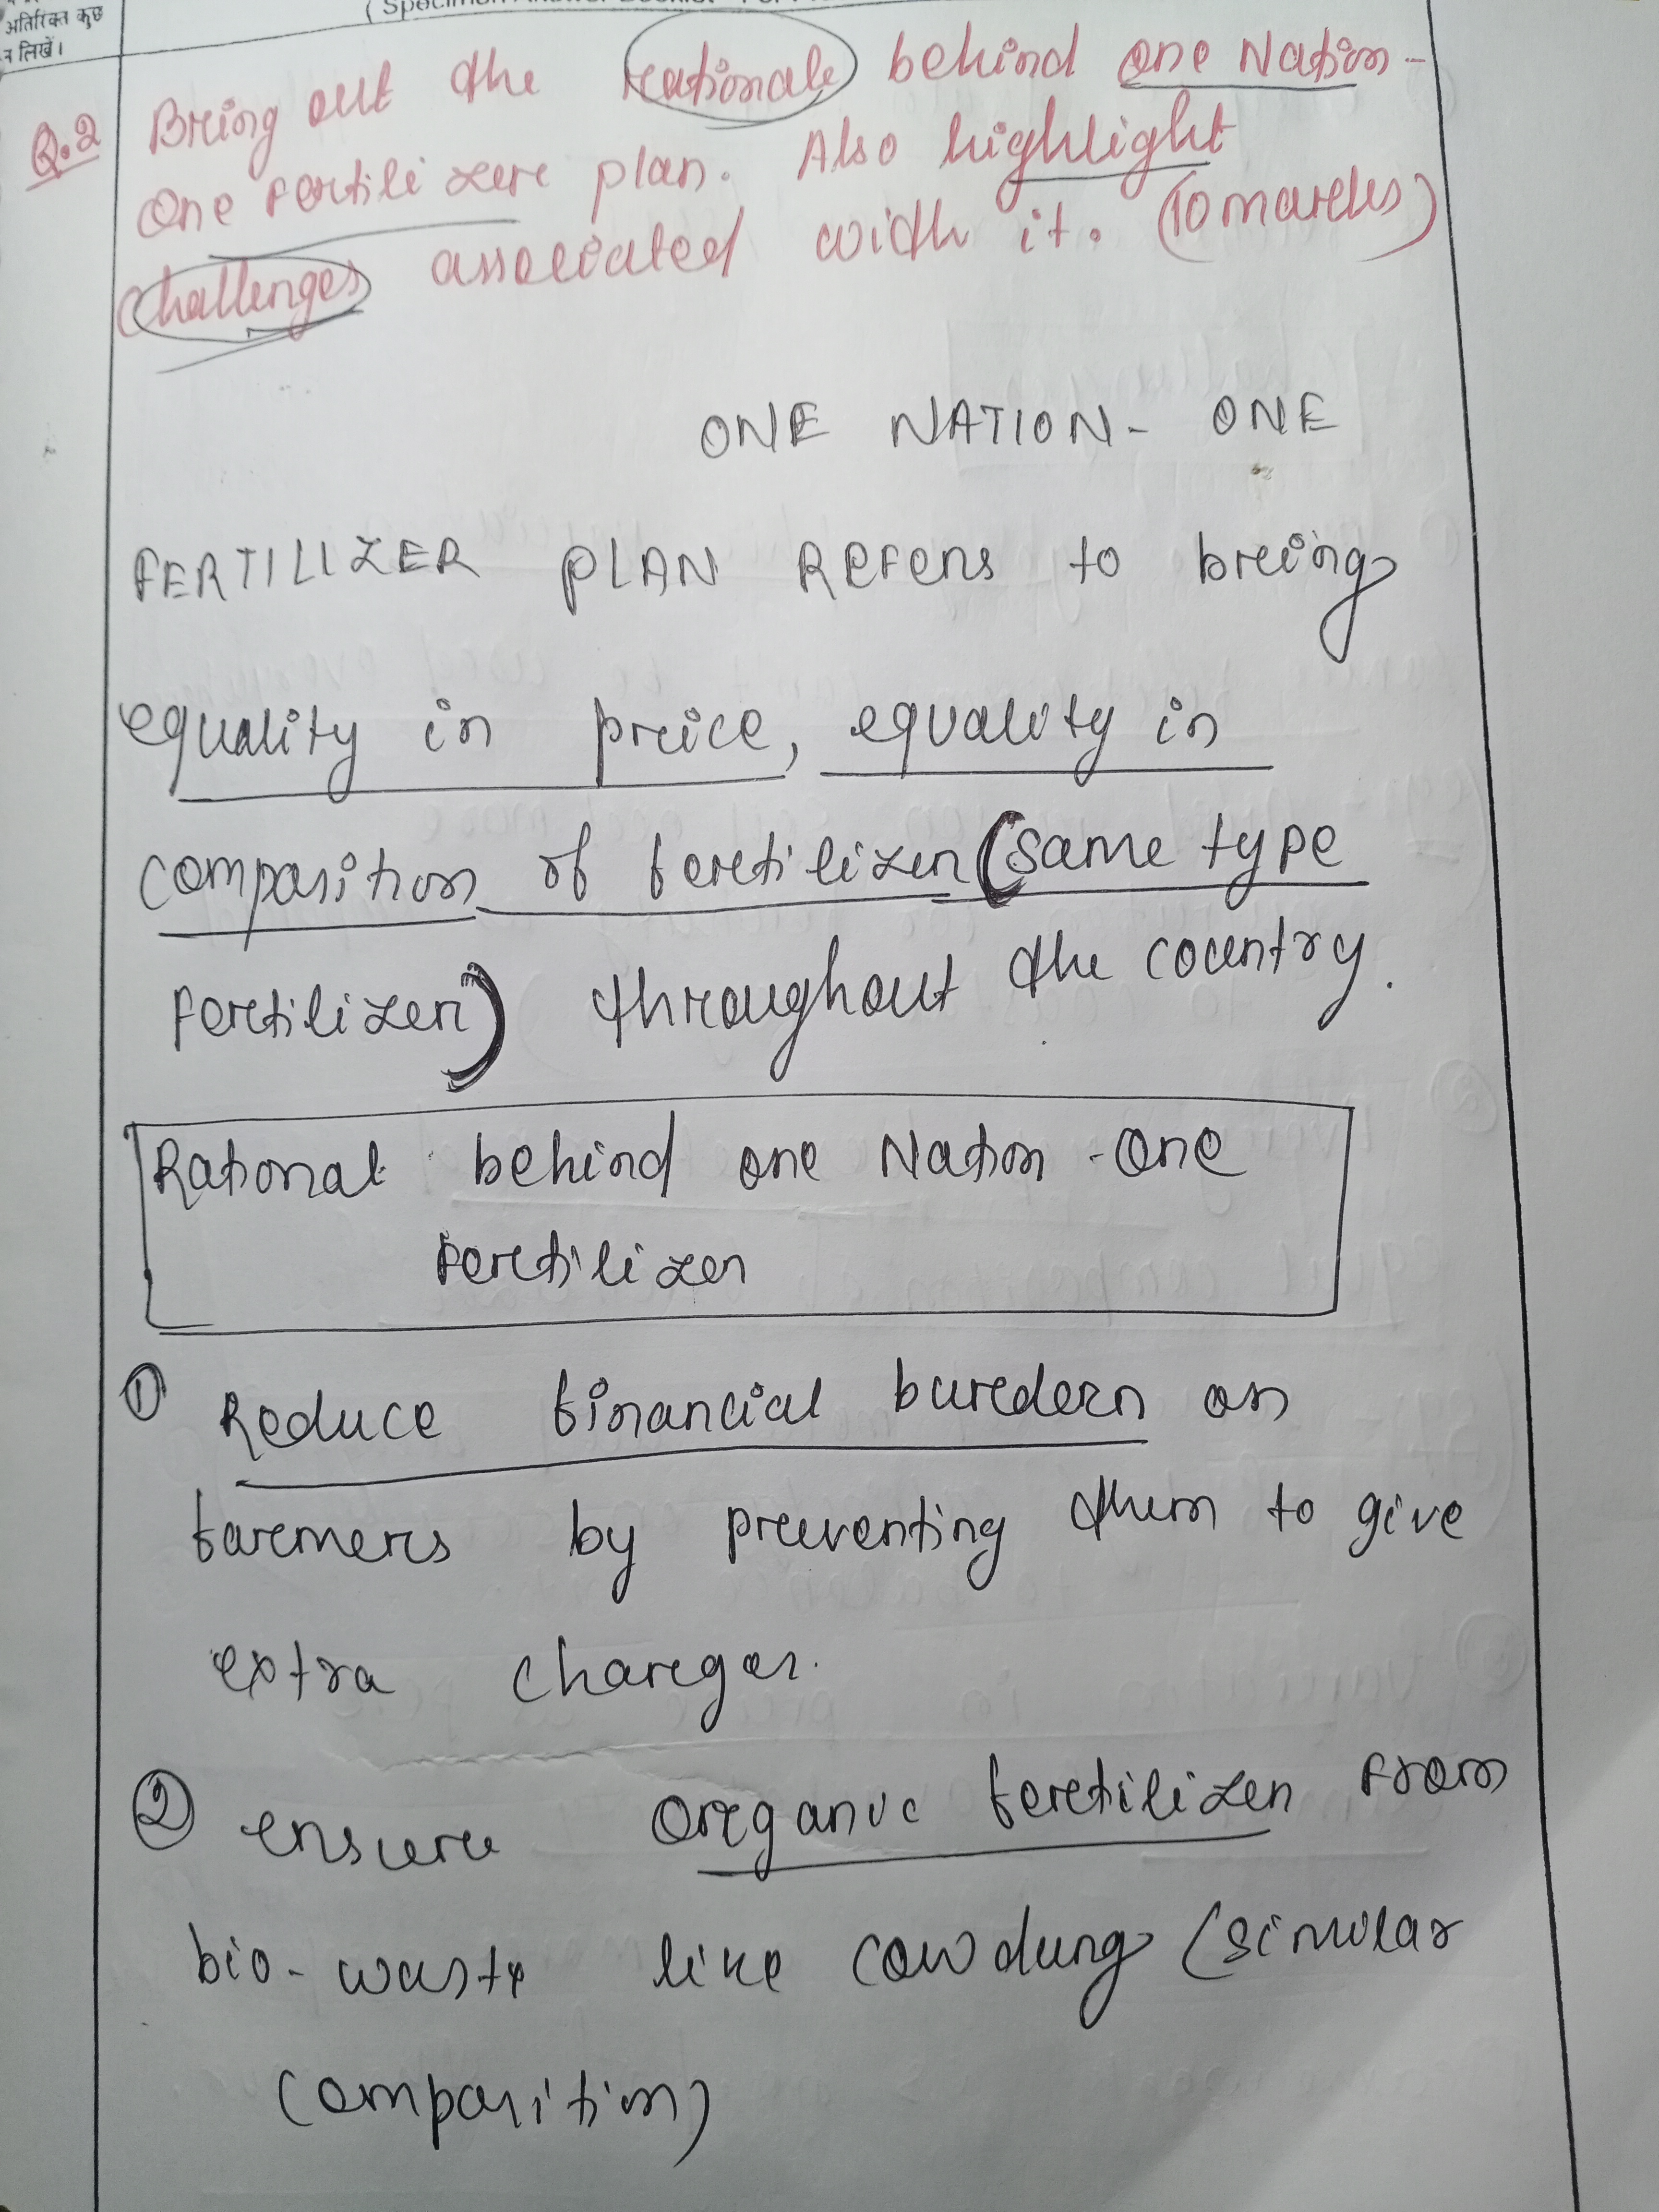 अतिरिक्त कुछ
न लिखें।
Q.2 Bring out the rationale behind one Nation-
One fertilizer plan. Also highlight
Challenges associated with it. (10 marks)
ONE NATION- ONE
FERTILIZER PLAN Refers to bring
equality in price, equality in
composition of fertilizer (same type
fertilizer) throughout the country.
Rational behind one Nation-One
Fertilizer
① Reduce financial burdern on
farmers by preventing them to give
extra charges.
② ensure Organic fertilizer from
bio-waste like cowdung (similar
composition)